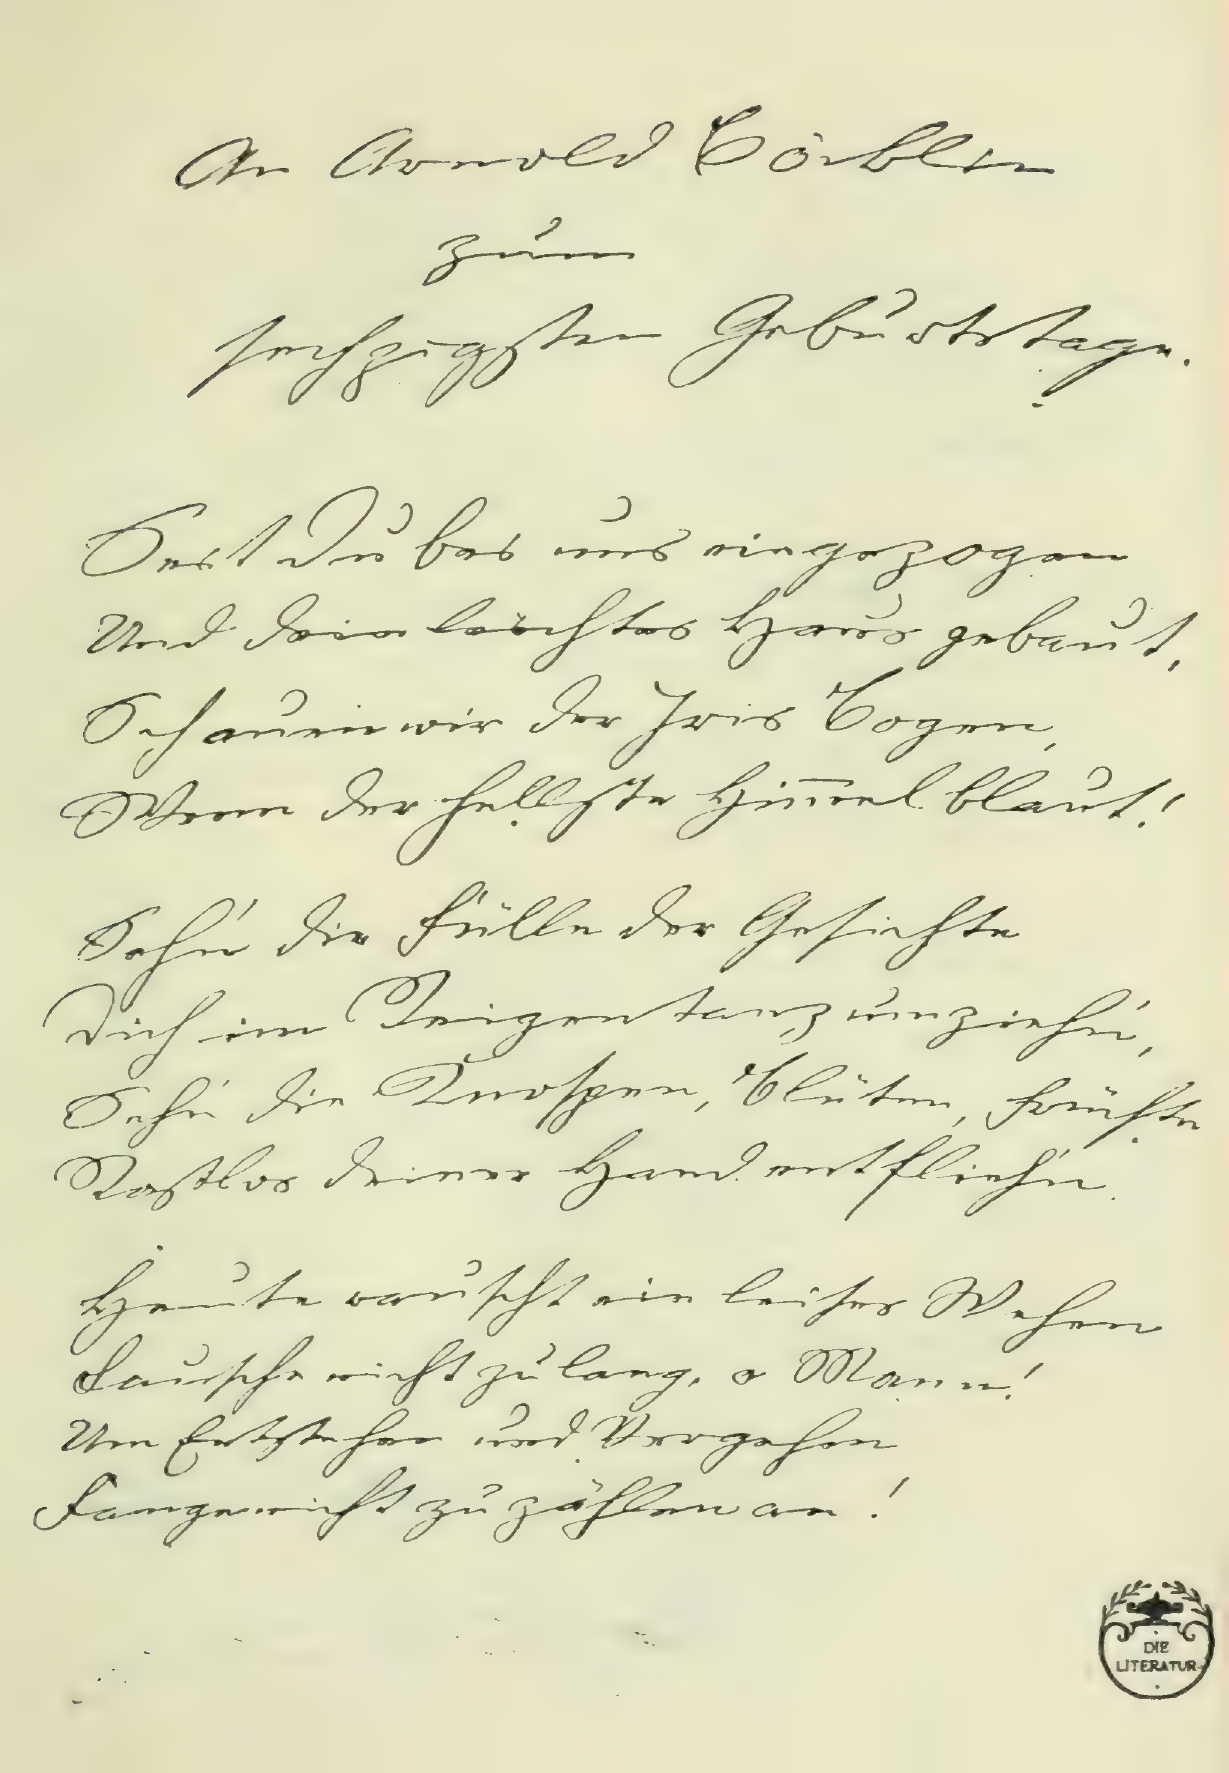 An Arnold Böcklin
zum
sechzigsten Geburtstage.
Seit Du bei uns eingezogen
Und dein leichtes Haus gebaut,
Schauen wir der Iris Bogen,
Wenn der hellste Him̅el blaut!
Seh'n die Fülle der Gesichte
Dich im Reigentanz umzieh'n,
Seh'n die Knospen, Blüten, Früchte
Rastlos deiner Hand entflieh'n.
Heute rauscht ein leises Wehen
Lausche nicht zu lang, o Mann!
Um Entstehen und Vergehen
Fange nicht zu zählen an!
DIE
LITERATUR